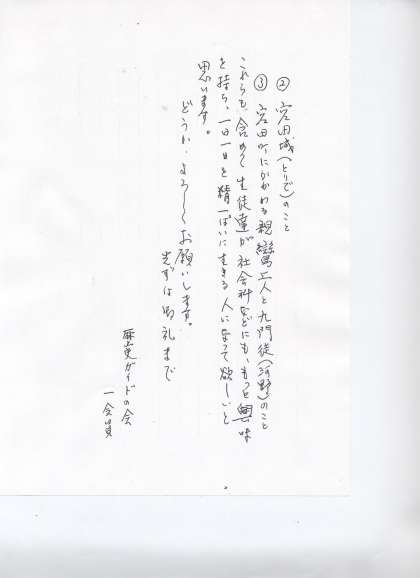 ② 宮田城(とりで)のこと
③ 宮田町にかかわる親鸞上人と九門徒(河野)のこと
これらを、含めて生徒達が社会科などにも、もっと興味
を持ち、一日一日を精一ぱいに生きる人になって欲しいと
思います。
どうか、よろしくお願いします。
先ずは御礼まで
歴史ガイドの会
一会員